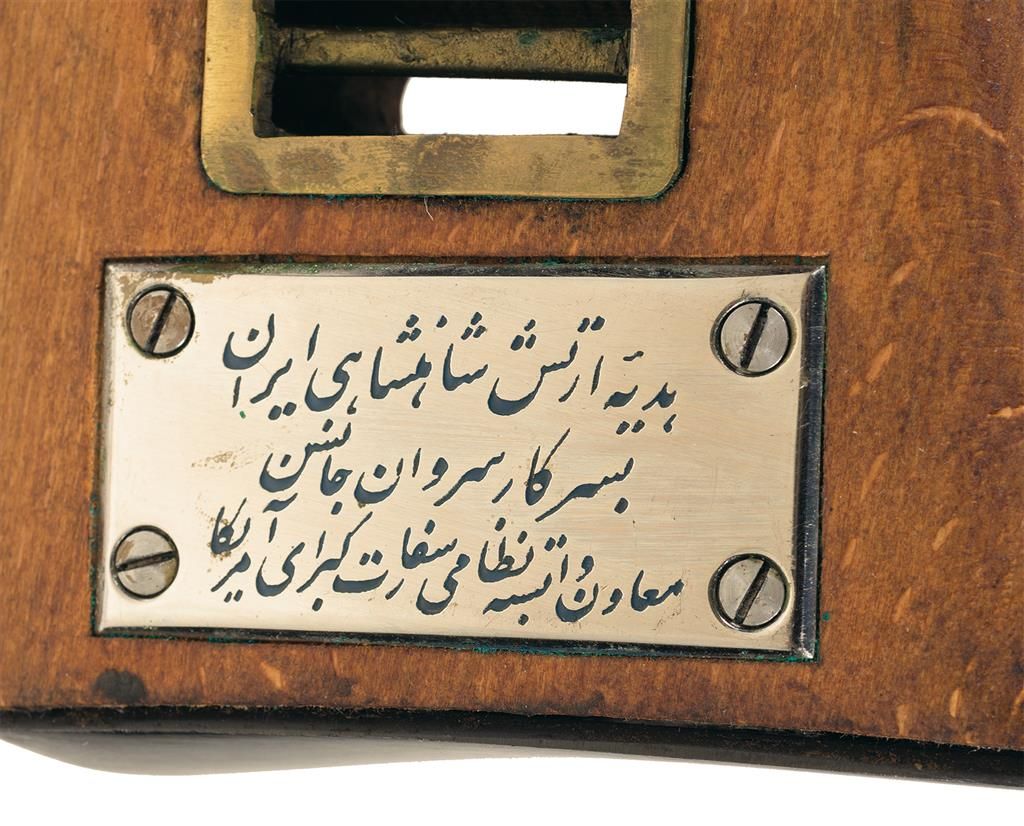 هدیهٔ ارتش شاهنشاهی ایران
بسرکار سروان جانسن
معاون وابسته نظامی سفارت کبرای آمریکا